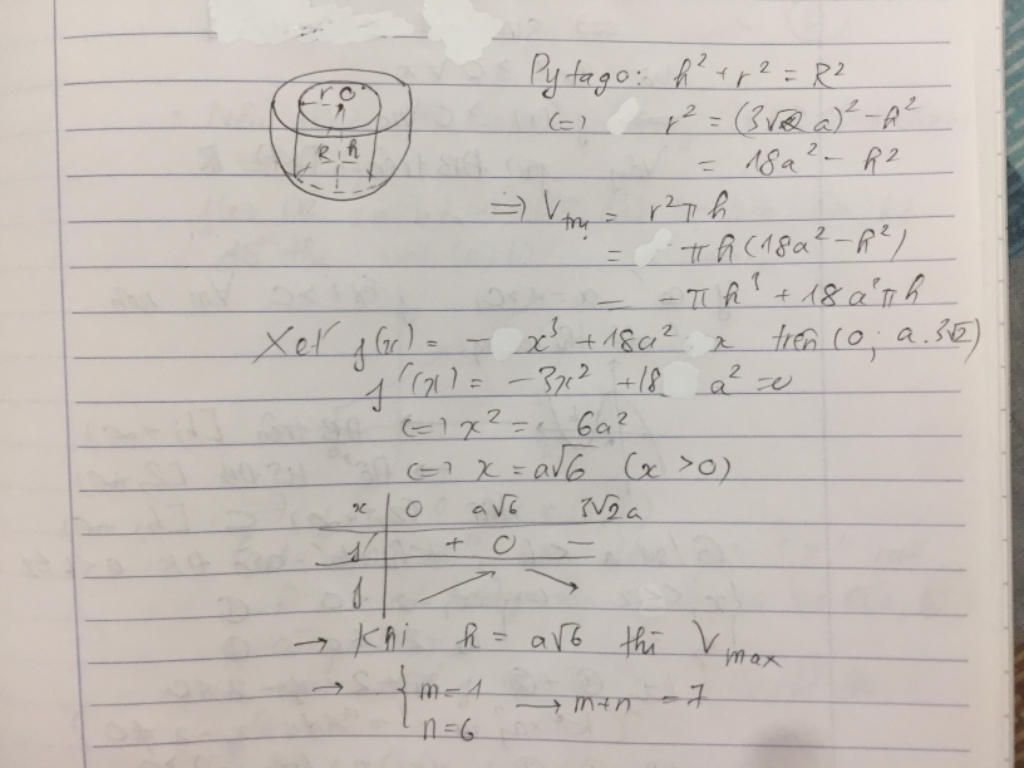 Pytago: h² + r² = R²
r O
(=) r² = (3√2 a)² - h²
R h
= 18a² - h²
=> V trụ = r²πh
= πh(18a² - h²)
= -πh³ + 18a²πh
Xét f(x) = - x³ + 18a² x trên (0; a.3√2)
f'(x) = -3x² + 18 a² = 0
(=) x² = 6a²
(=) x = a√6 (x > 0)
x 0 a√6 3√2a
f' + 0 -
f
→ Khi h = a√6 thì V max
→ { m = 1 → m+n = 7
n = 6